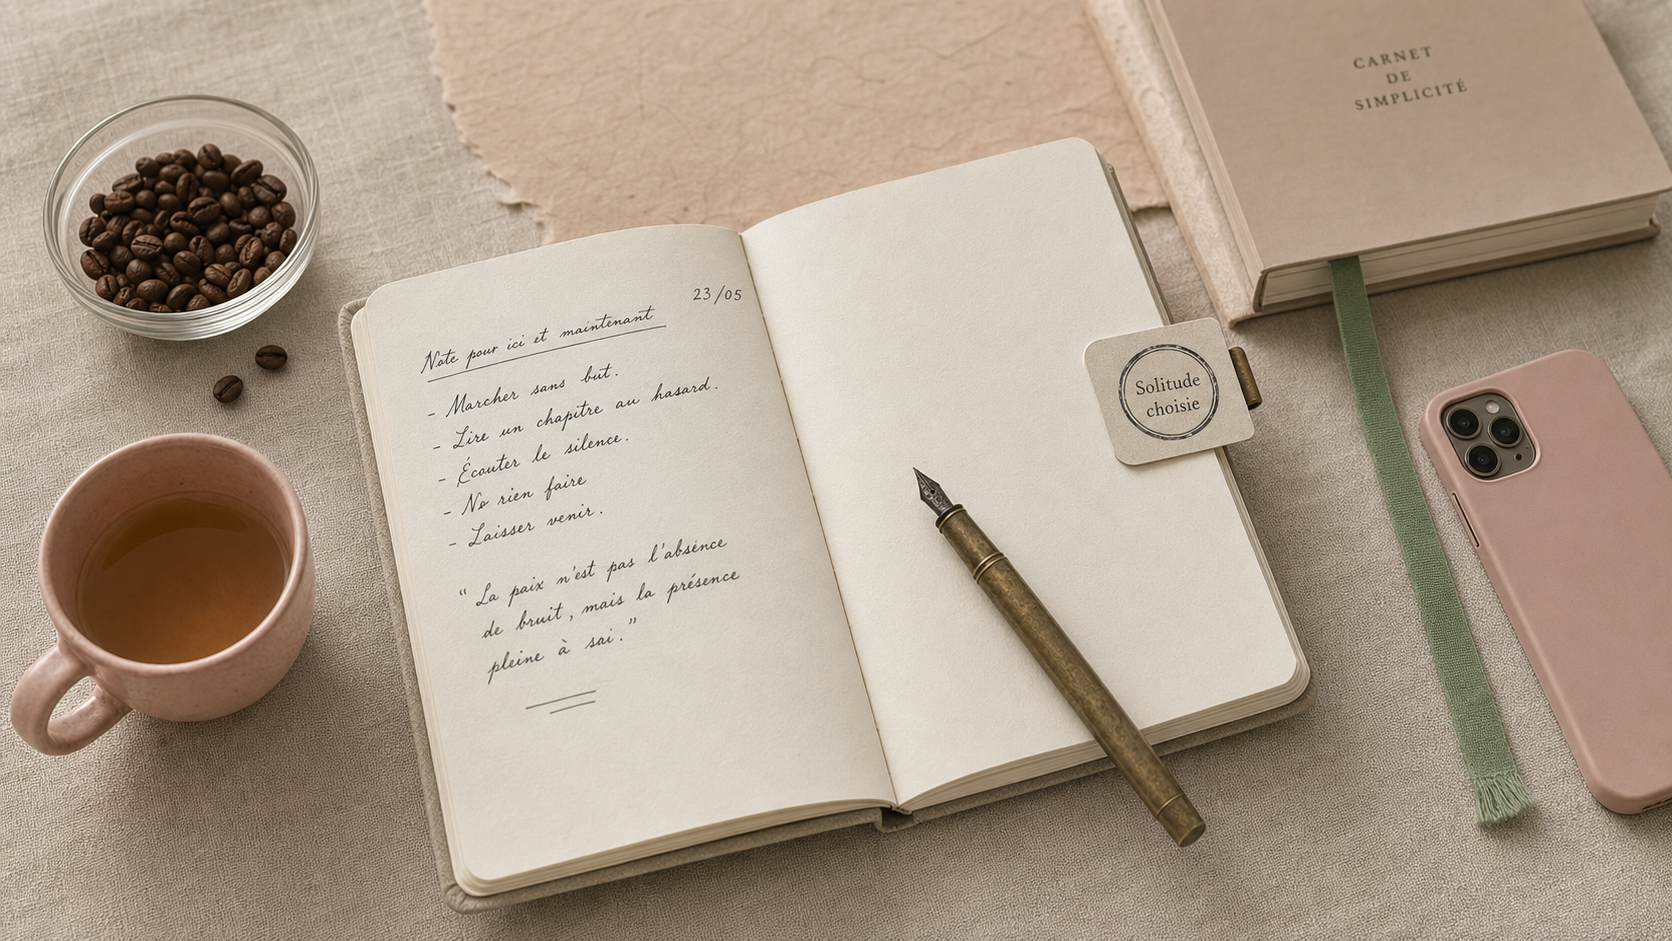 23/05
Note pour ici et maintenant
- Marcher sans but.
- Lire un chapitre au hasard.
- Écouter le silence.
- No rien faire
- Laisser venir.
“ La paix n'est pas l'absence
de bruit, mais la présence
pleine à sai.”
Solitude
choisie
CARNET
DE
SIMPLICITÉ